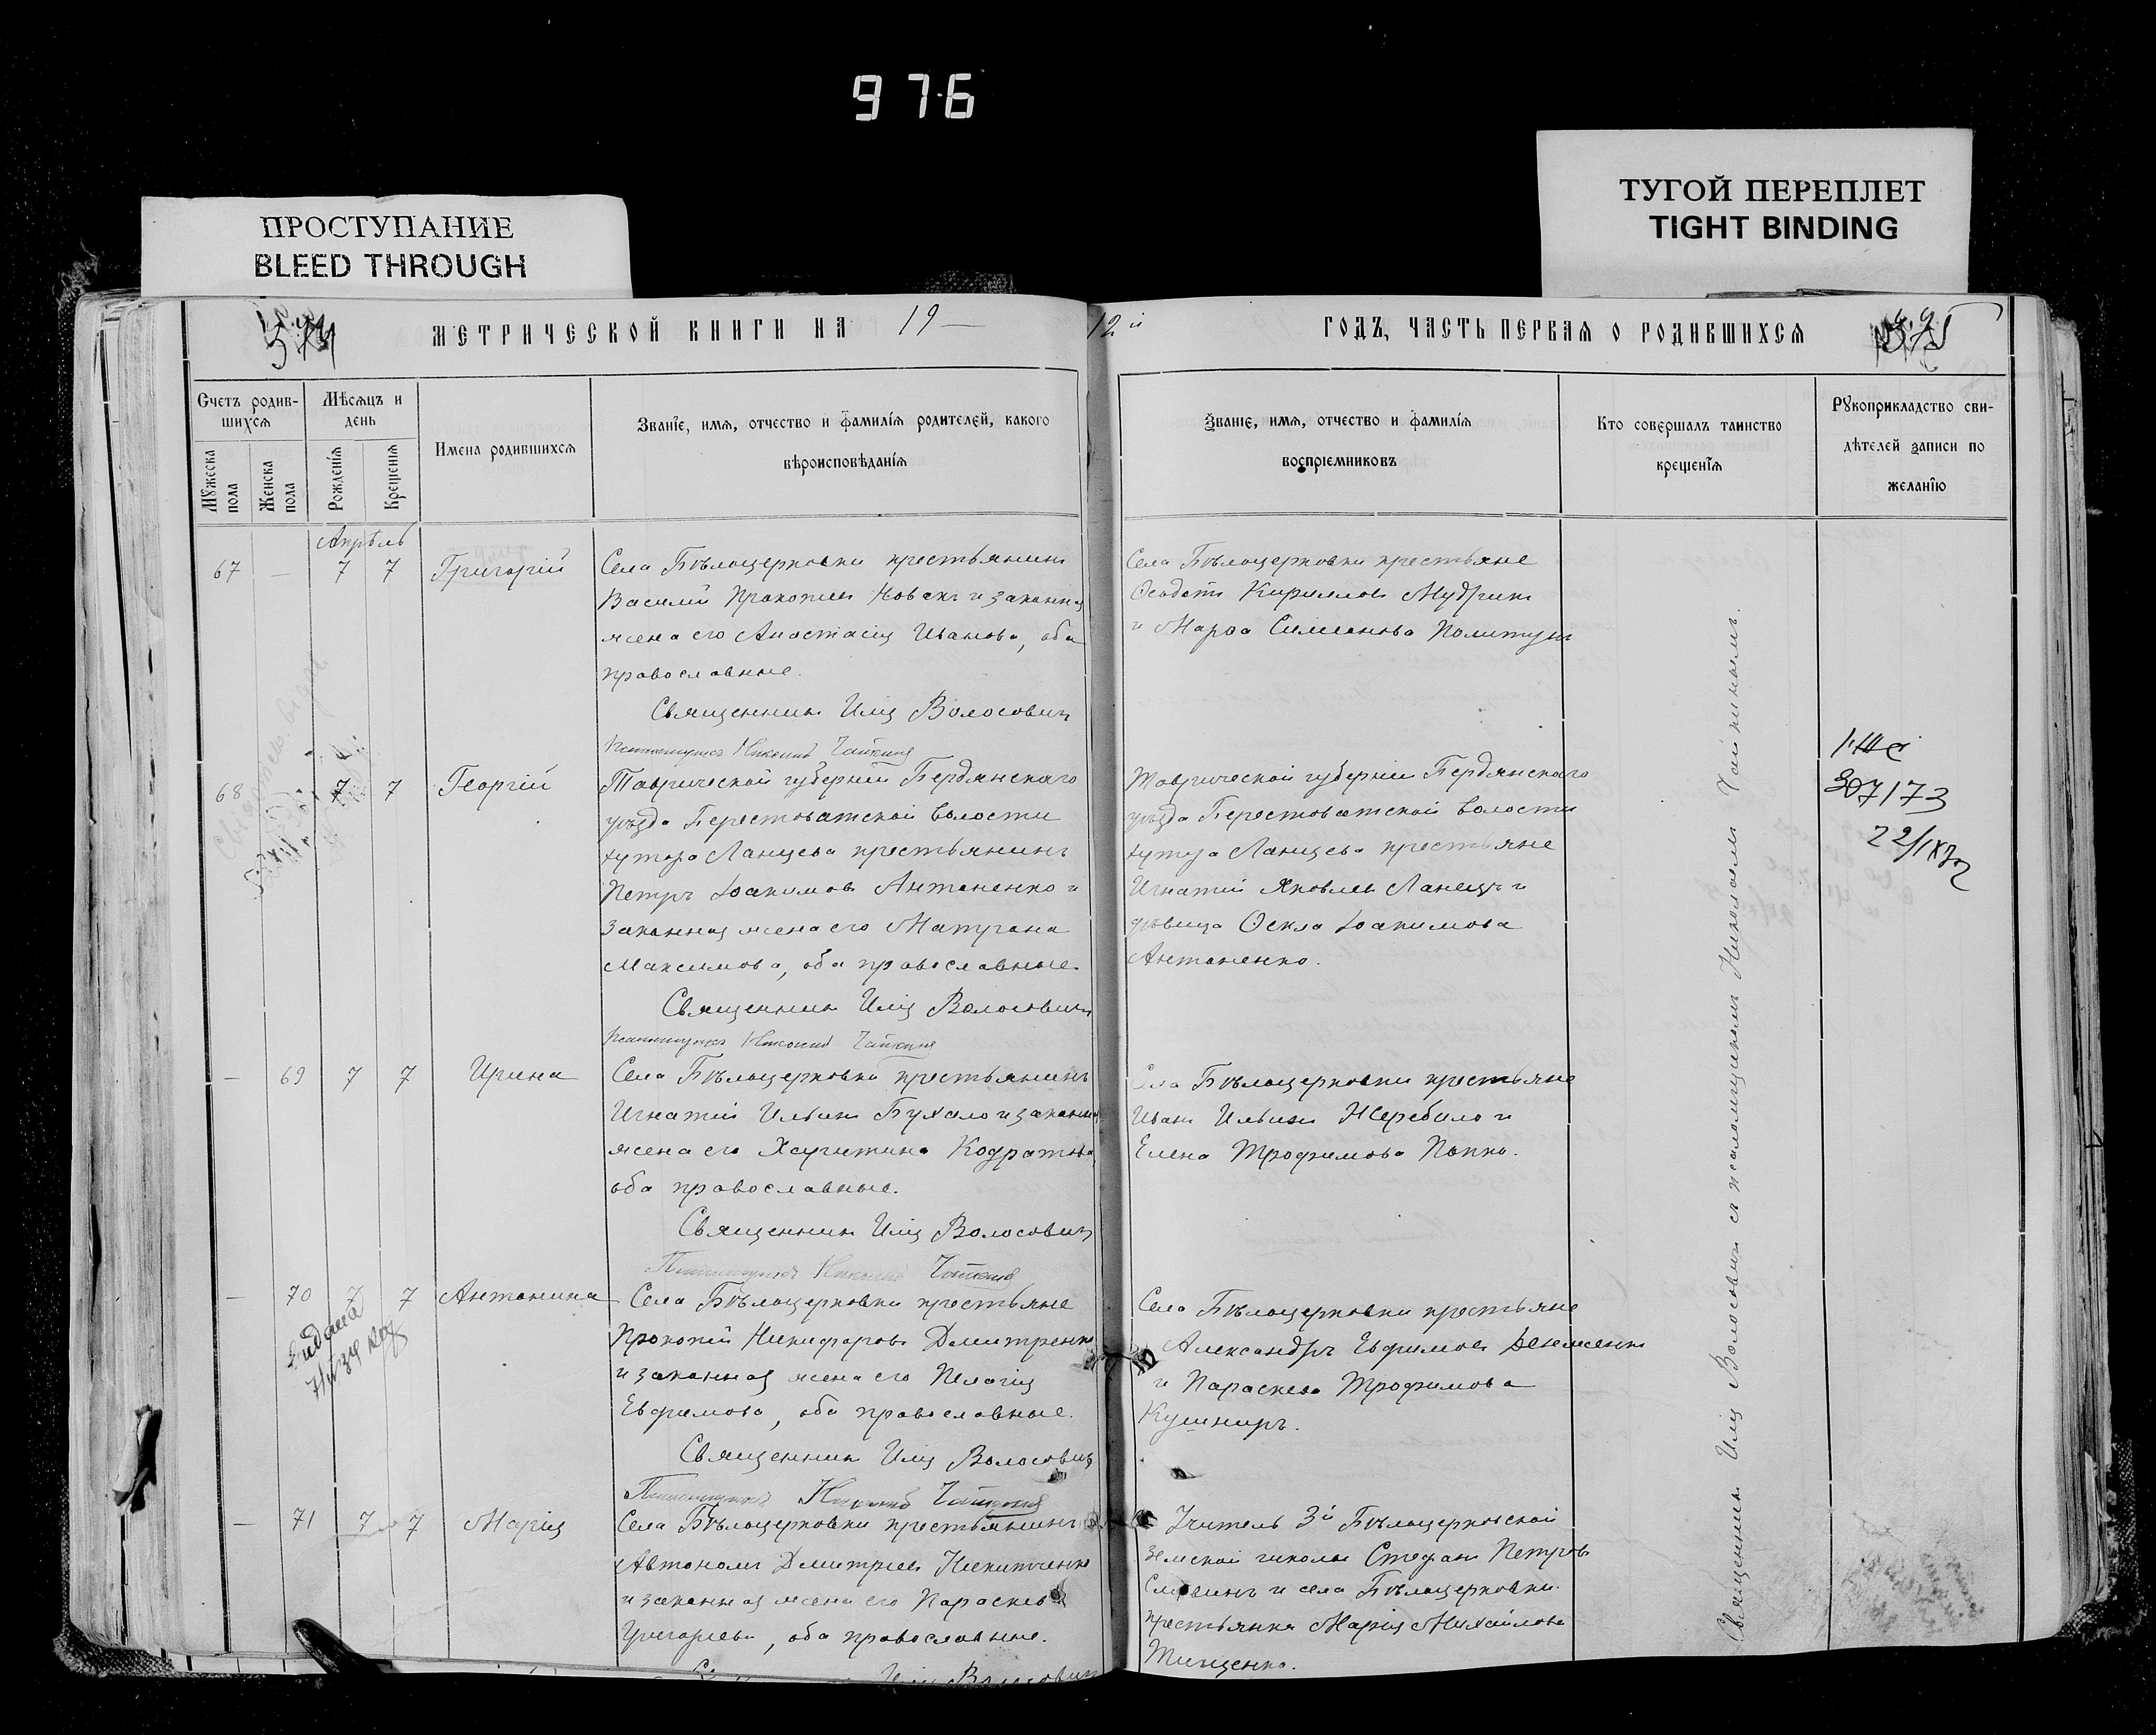 976
ПРОСТУПАНИЕ
BLEED THROUGH
ТУГОЙ ПЕРЕПЛЕТ
TIGHT BINDING
МЕТРИЧЕСКОЙ КНИГИ НА 19
12 й ГОДЪ, ЧАСТЬ ПЕРВАЯ О РОДИВШИХСЯ
Счетъ родив-
шихся
Мѣсяцъ и
день
Мужеска пола
Женска пола
Рожденія
Крещенія
Имена родившихся
Званіе, имя, отчество и фамилія родителей, какого
вѣроисповѣданія
Званіе, имя, отчество и фамилія
воспріемниковъ
Кто совершалъ таинство
крещенія
Рукоприкладство сви-
дѣтелей записи по
желанію
Апрѣль
67 — 7 7 Григорій
Села Бѣлоцерковки крестьянинъ
Василій Прокопіевъ Новакъ и законная
жена его Анастасія Иванова, оба
православные.
Священникъ Илія Волосовичъ
Псаломщикъ Николай
Села Бѣлоцерковки крестьяне
Ѳеодотъ Кирилловъ
и Марѳа Симеонова
68 7 7 Георгій
Таврической губерніи Бердянскаго
уѣзда Берестоватской волости
хутора Ланцева крестьянинъ
Петръ Іоакимовъ Антоненко и
законная жена его Матрона
Максимова, оба православные.
Священникъ Илія Волосовичъ
Псаломщикъ Николай
Таврической губерніи Бердянскаго
уѣзда Берестоватской волости
хутора Ланцева крестьяне
Игнатій Яковлевъ Ланецъ и
дѣвица Ѳекла Іоакимова
Антоненко.
307173
— 69 7 7 Ирина
Села Бѣлоцерковки крестьянинъ
Игнатій Ильинъ Бухало и законная
жена его Харитина Кодратова,
оба православные.
Священникъ Илія Волосовичъ
Псаломщикъ Николай
Села Бѣлоцерковки крестьяне
Иванъ Ильинъ Жеребило и
Елена Трофимова Попко.
— 70 7 7 Антонина
Села Бѣлоцерковки крестьяне
Прокопій Никифоровъ Дмитренко
и законная жена его Пелагія
Евфимова, оба православные.
Священникъ Илія Волосовичъ
Псаломщикъ Николай
Села Бѣлоцерковки крестьяне
Александръ Евфимовъ
и Параскева Трофимова
Кушниръ.
— 71 7 7 Марія
Села Бѣлоцерковки крестьянинъ
Автономъ Дмитріевъ Никитченко
и законная жена его Параскева
Григорьева, оба православные.
Илія Волосовичъ
Учитель 3й Бѣлоцерковской
земской школы Стефанъ Петровъ
и села Бѣлоцерковки
крестьянка Марія Михайлова
Тищенко.
Священникъ Илія Волосовичъ съ псаломщикомъ Николаемъ